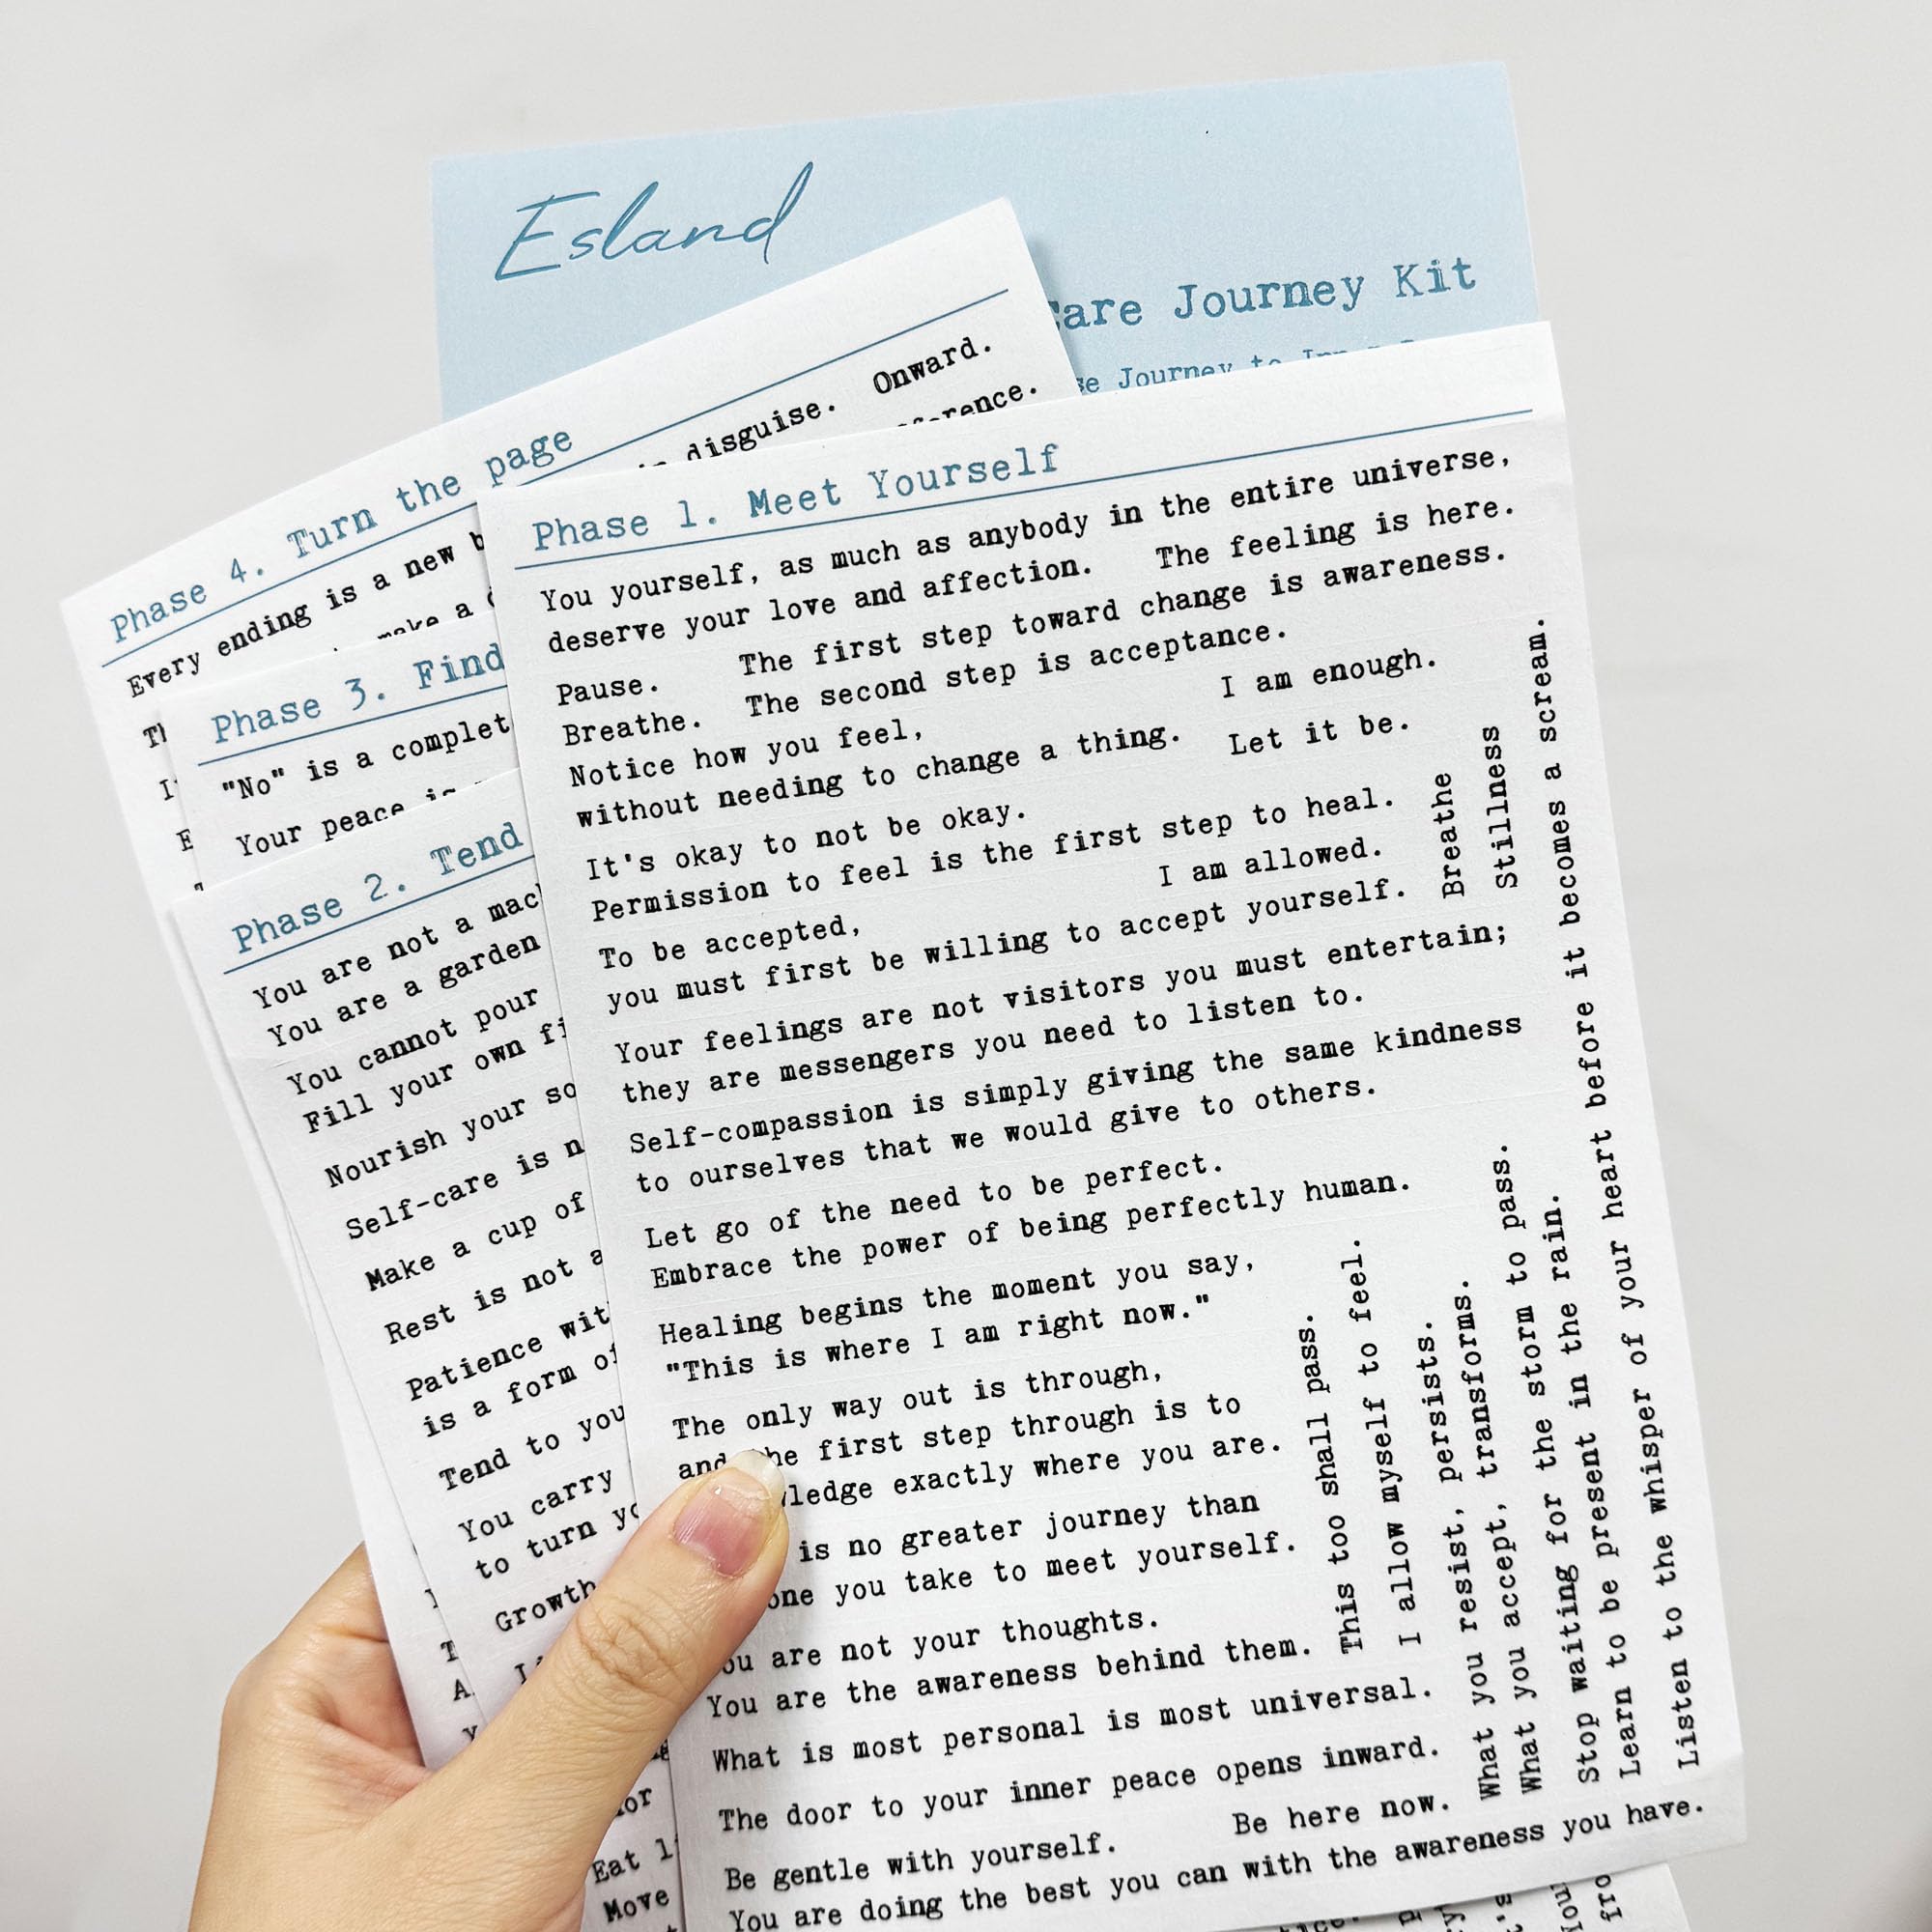 Esland
Care Journey Kit
Journey to
Phase 4. Turn the page
Every ending is a new
disguise. Onward.
make a
Phase 3. Find
"No" is a
Your peace is
Phase 2. Tend
You are not a
You are a garden
You cannot pour
Fill your own
Nourish your
Self-care is
Make a cup of
Rest is not a
Patience
is a form of
Tend to
You carry
to turn
Growth
Eat
Move
Phase 1. Meet Yourself
You yourself, as much as anybody in the entire universe,
deserve your love and affection. The feeling is here.
Pause. The first step toward change is awareness.
Breathe. The second step is acceptance.
Notice how you feel, I am enough.
without needing to change a thing. Let it be.
It's okay to not be okay.
Permission to feel is the first step to heal.
I am allowed.
To be accepted,
you must first be willing to accept yourself.
Your feelings are not visitors you must entertain;
they are messengers you need to listen to.
Self-compassion is simply giving the same kindness
to ourselves that we would give to others.
Let go of the need to be perfect.
Embrace the power of being perfectly human.
Healing begins the moment you say,
"This is where I am right now."
The only way out is through,
and the first step through is to
exactly where you are.
is no greater journey than
one you take to meet yourself.
You are not your thoughts.
You are the awareness behind them.
What is most personal is most universal.
The door to your inner peace opens inward.
Be gentle with yourself. Be here now.
You are doing the best you can with the awareness you have.
Breathe
Stillness
This too shall pass.
I allow myself to feel.
What you resist, persists.
What you accept, transforms.
Stop waiting for the storm to pass.
Learn to be present in the rain.
Listen to the whisper of your heart before it becomes a scream.